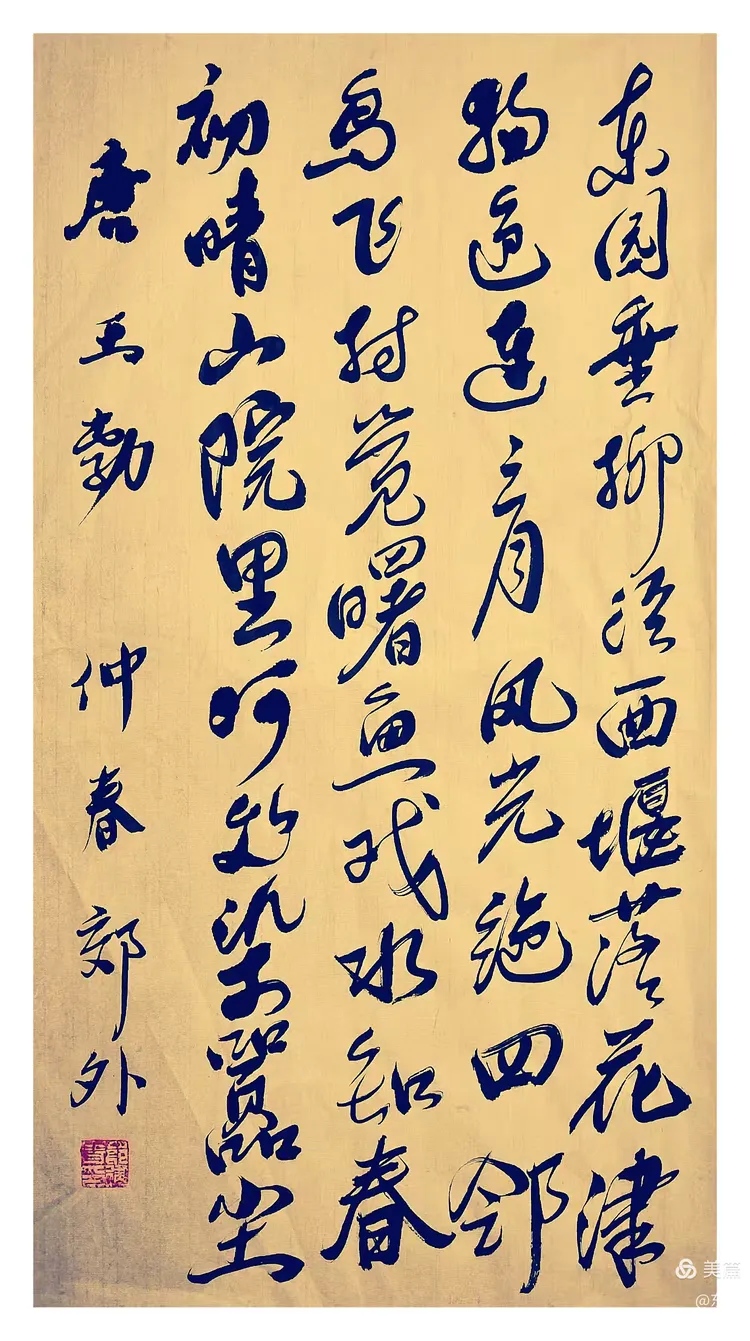 东园垂柳径西堰落花津
物色连三月风光绝四邻
鸟飞村觉曙鱼戏水知春
初晴山院里何处染嚣尘
唐 王勃 仲春郊外
美篇